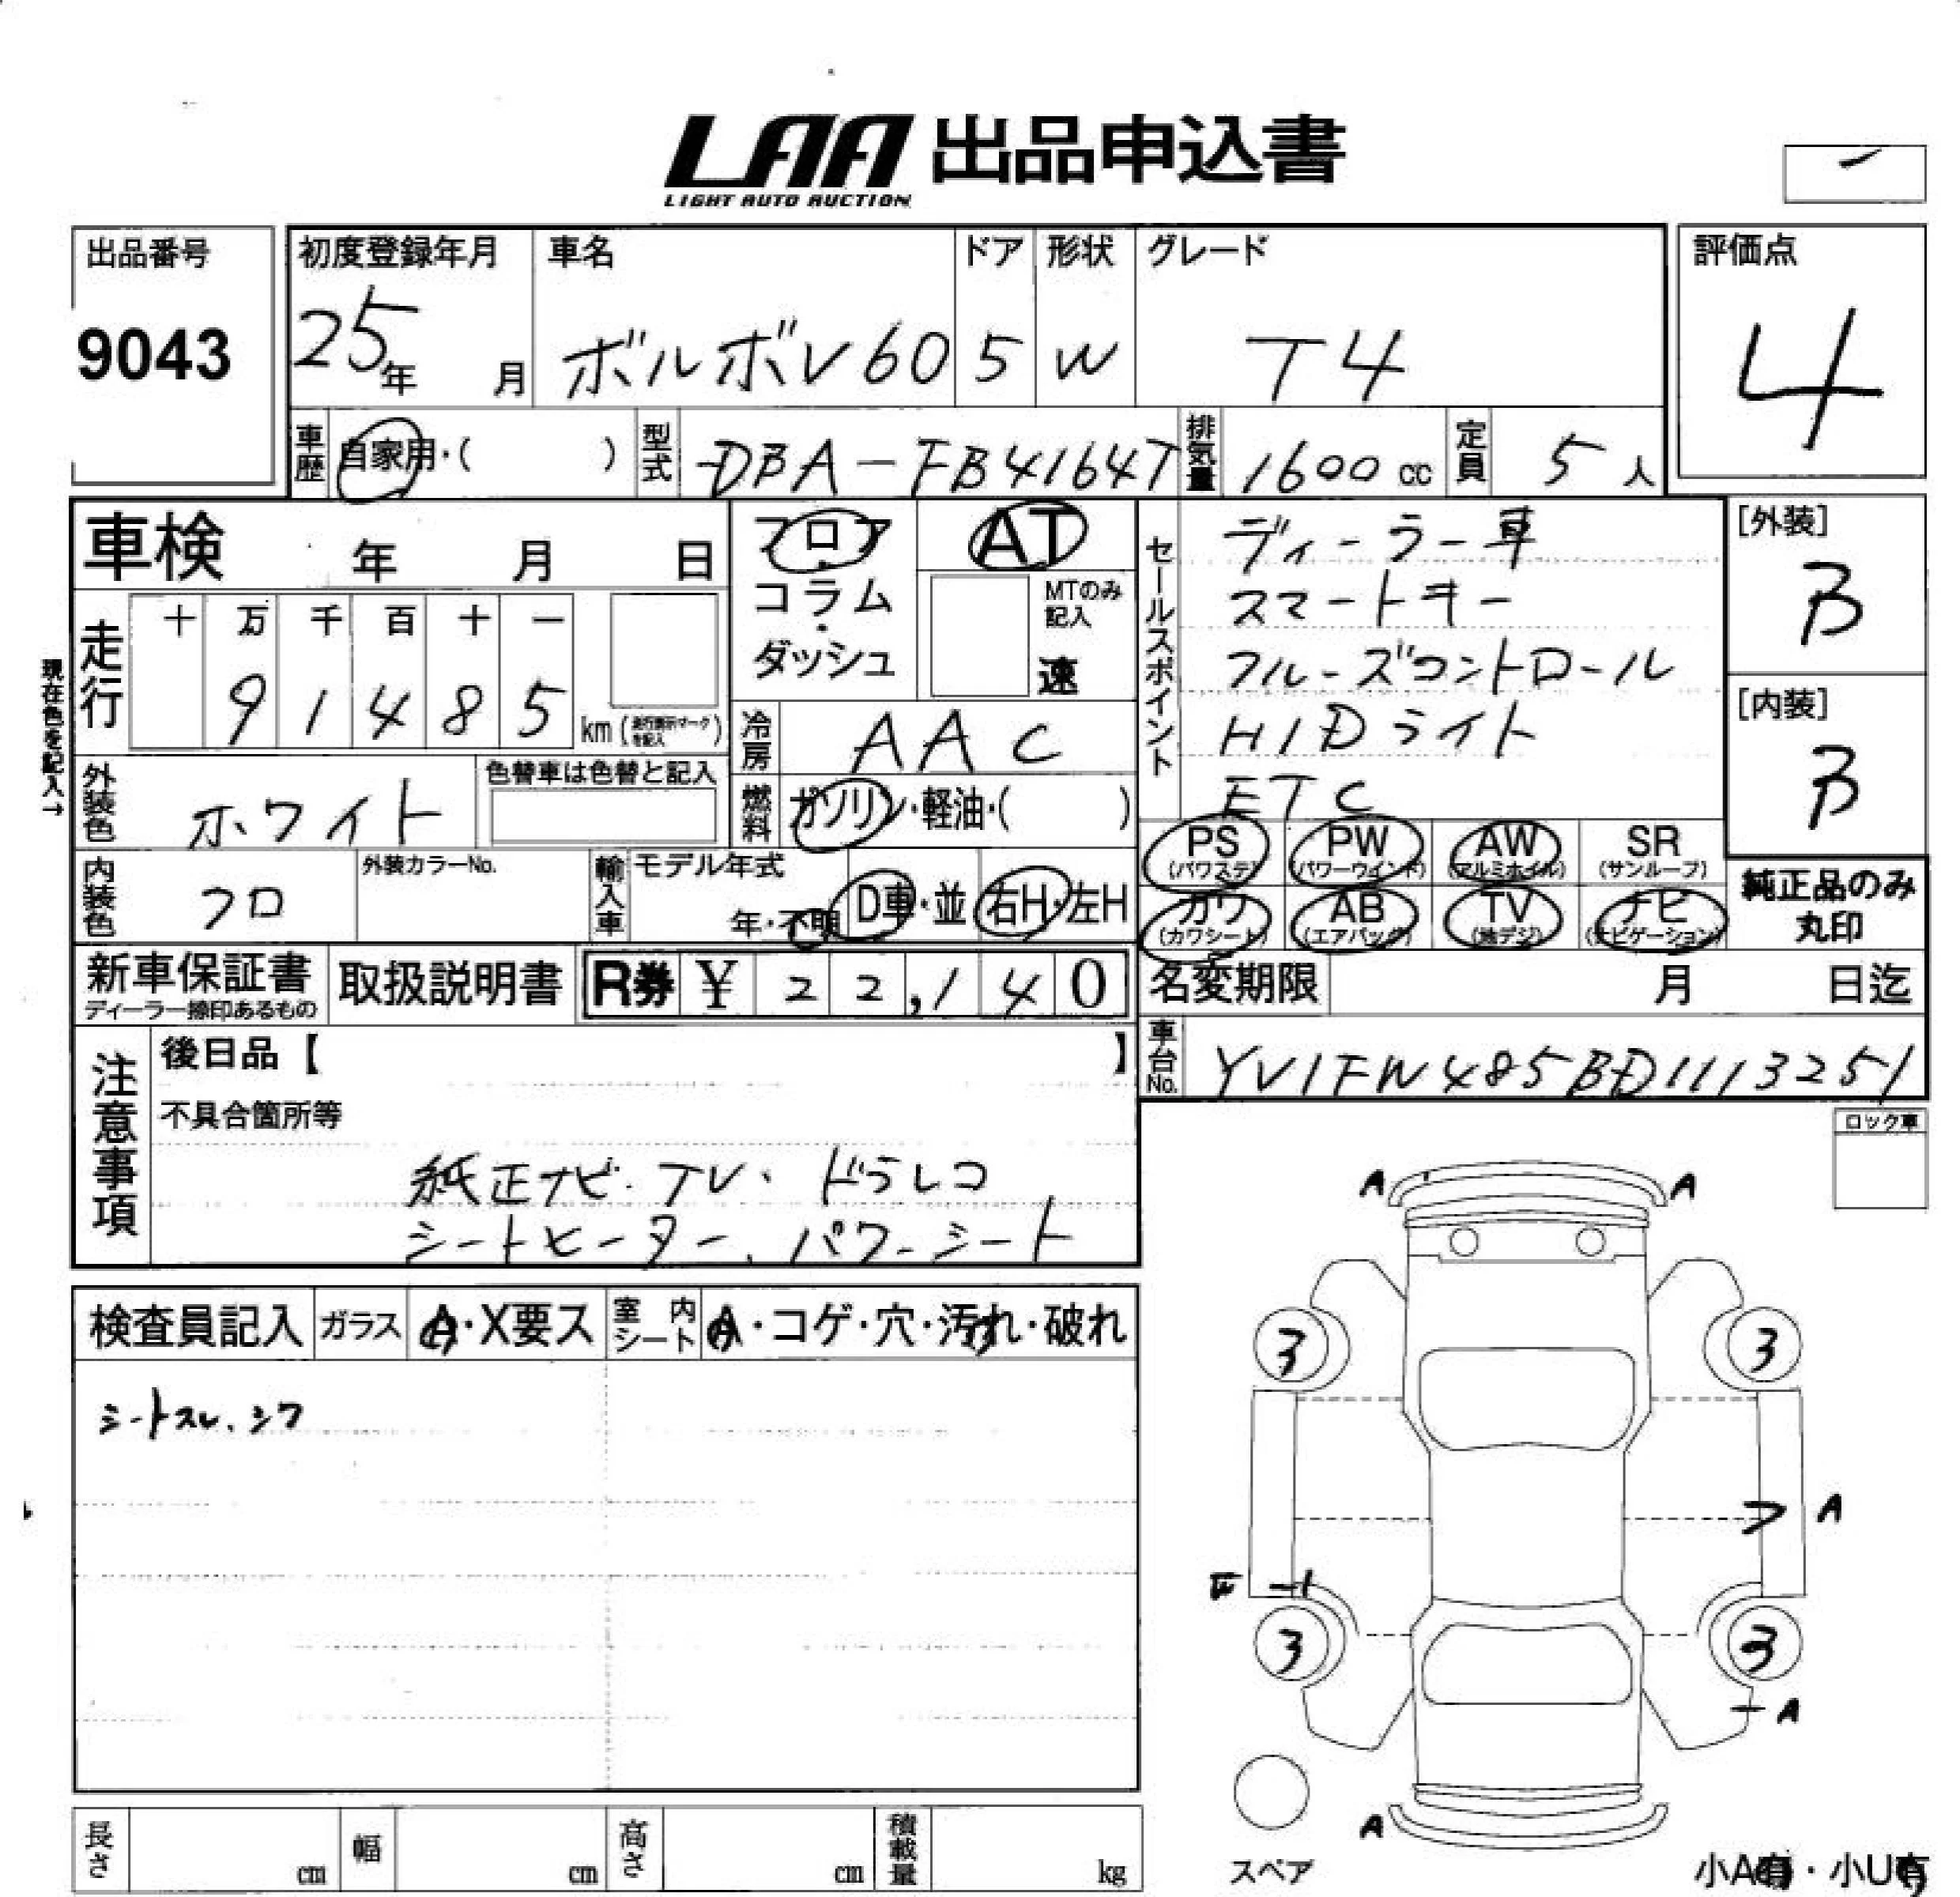 LAA 出品申込書
LIGHT AUTO AUCTION
出品番号 初度登録年月 車名 ドア 形状 グレード 評価点
9043 25年 月 ボルボV60 5 W T4 4
車歴 自家用・( ) 型式 DBA-FB4164T 排気量 1600cc 定員 5人
車検 年 月 日
フロア
コラム
ダッシュ
AT
MTのみ
記入
速
走行 十 万 千 百 十 一
9 1 4 8 5 km
現在色を記入→
冷房 AAC
外装色 ホワイト
色替車は色替と記入
燃料 ガソリン・軽油・( )
内装色 クロ
外装カラーNo.
輸入車 モデル年式
年・不明 D車・並 右H・左H
セールスポイント
ディーラー車
スマートキー
クルーズコントロール
HIDライト
ETC
[外装]
B
[内装]
B
PS PW AW SR
(パワステ) (パワーウインド) (アルミホイル) (サンルーフ)
カワ AB TV ナビ
(カワシート) (エアバック) (地デジ) (ナビゲーション)
純正品のみ
丸印
新車保証書
ディーラー捺印あるもの
取扱説明書 R券 ¥ 22,140
名変期限 月 日迄
車台No. YV1FW485BD1113251
注意事項
後日品【 】
不具合箇所等
純正ナビ.TV、ドラレコ
シートヒーター、パワーシート
検査員記入 ガラス A・X要ス 室内シート A・コゲ・穴・汚れ・破れ
シートスレ、シワ
ロック車
A A
3 3
A
3 3
A
A
スペア
小A有・小U有
長さ cm 幅 cm 高さ cm 積載量 kg